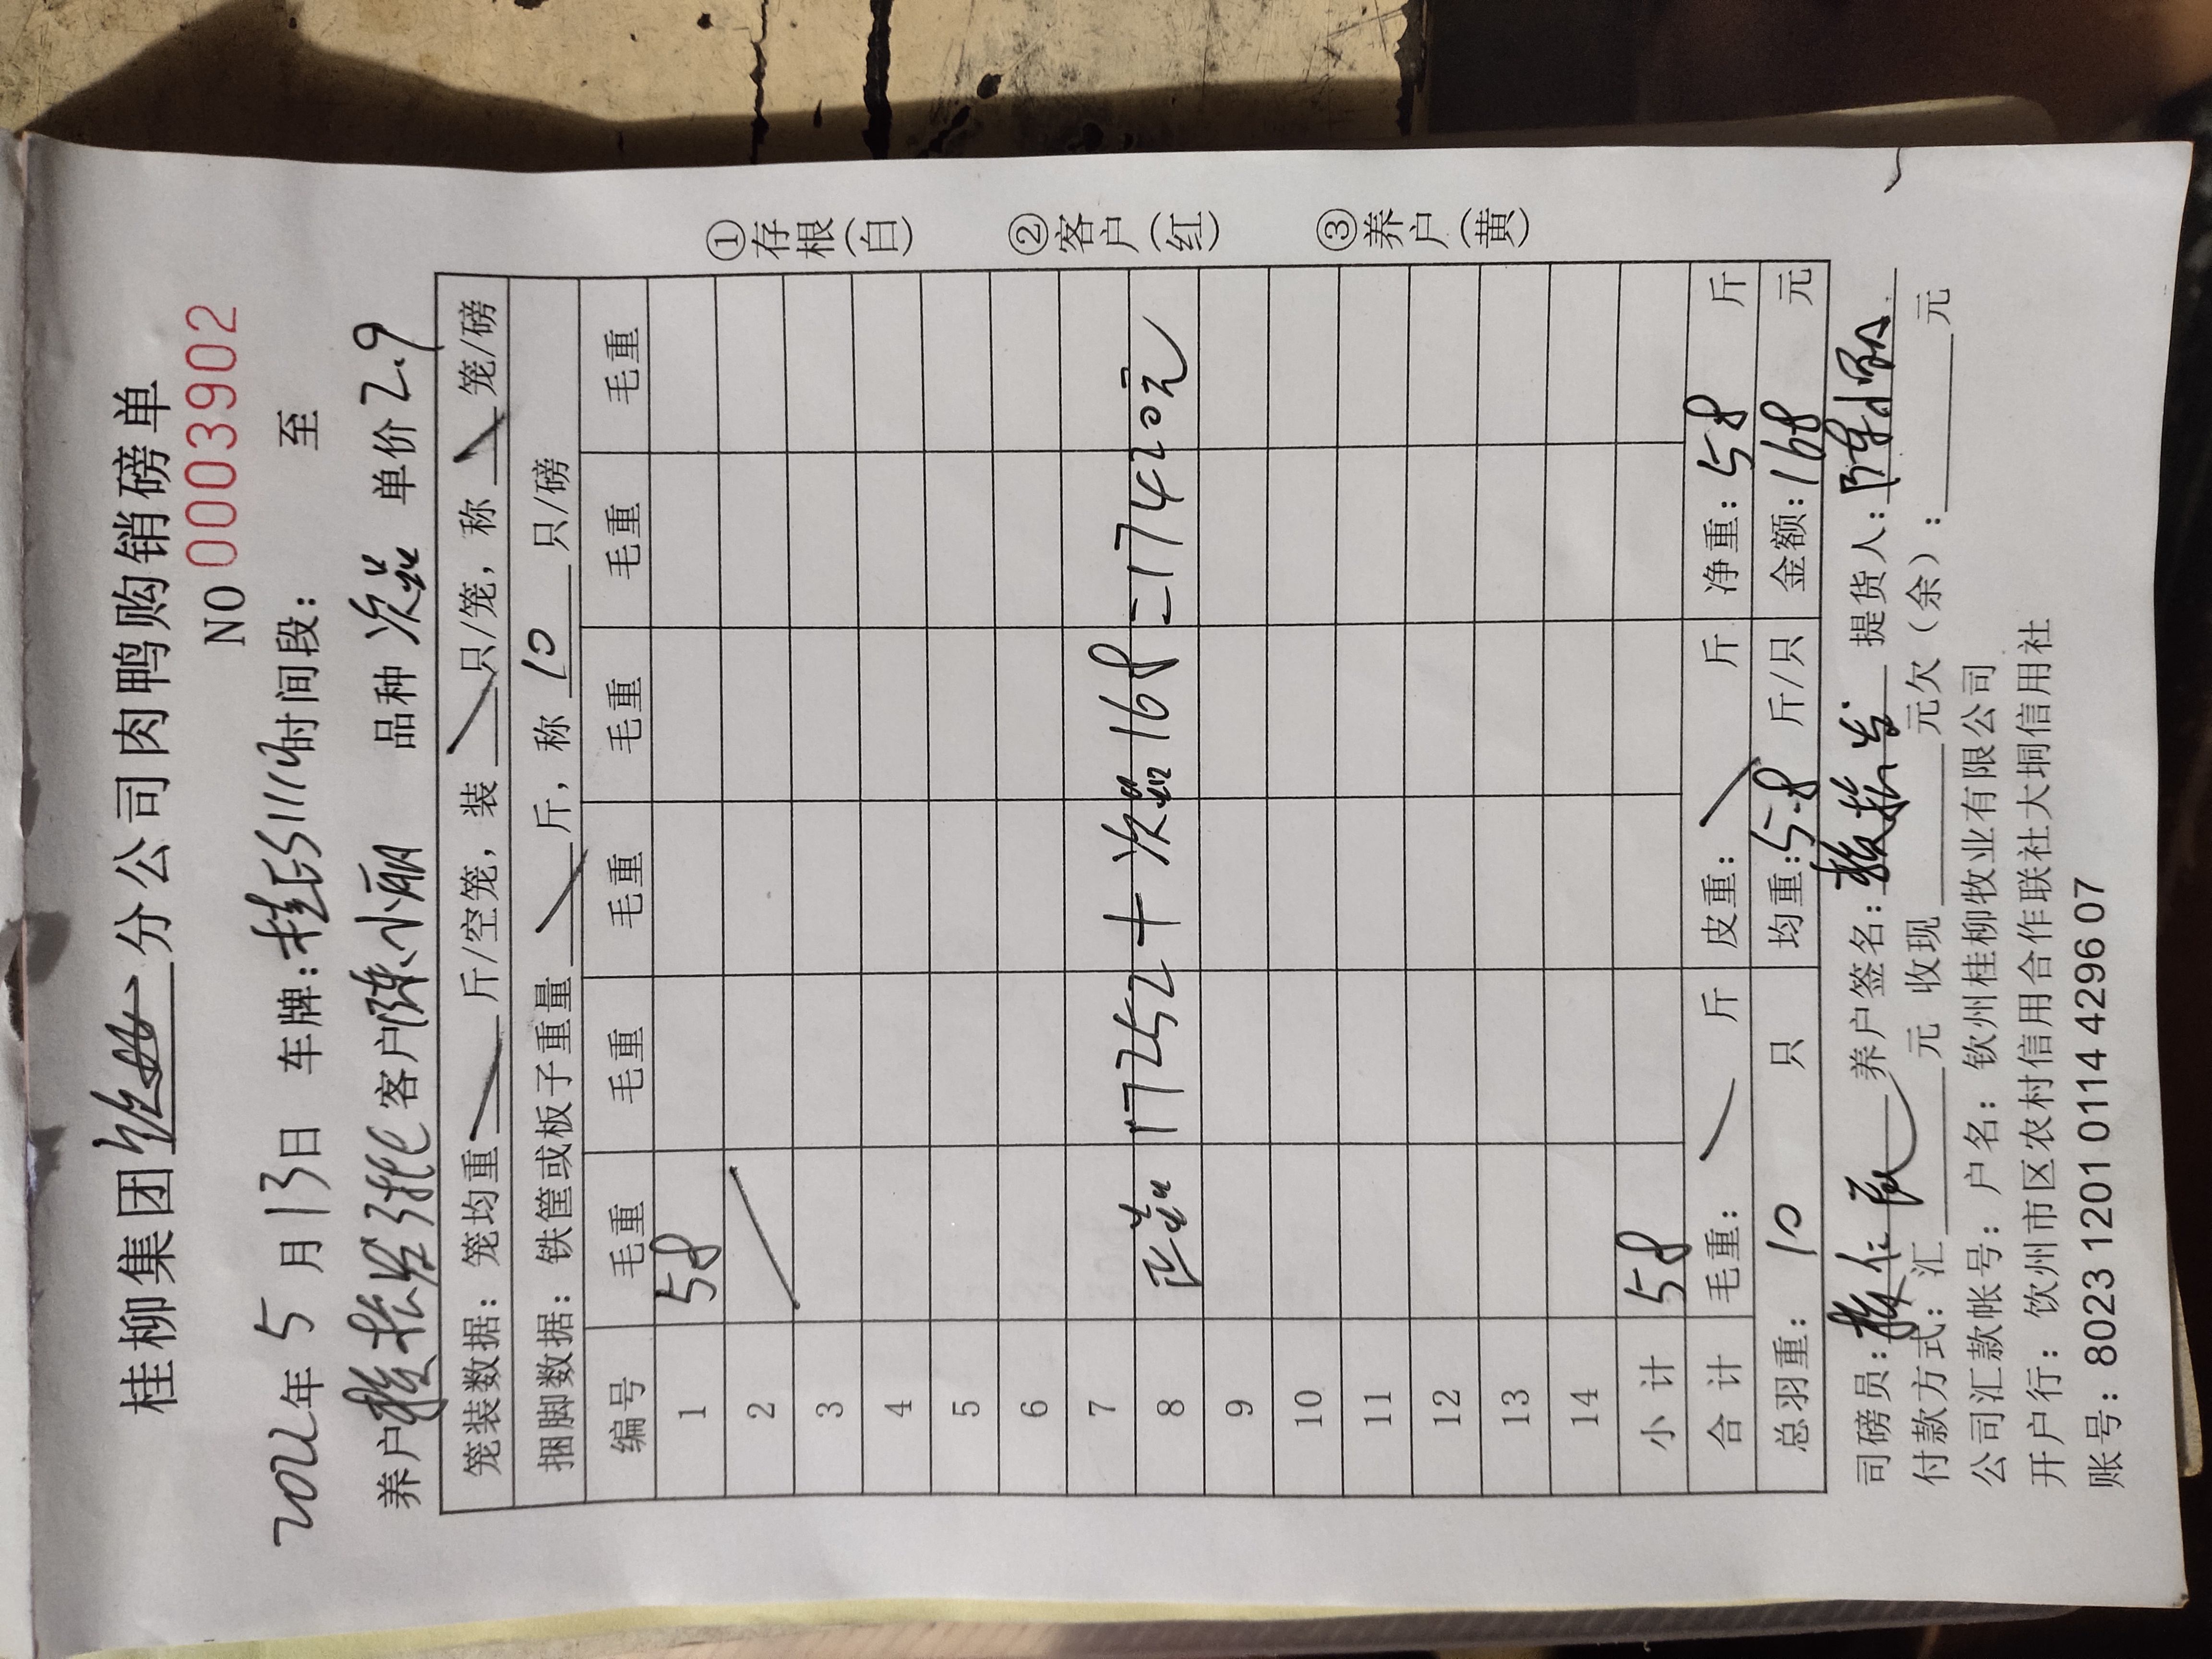 桂柳集团 分公司肉鸭购销磅单
NO 0003902
年 5 月 13 日 车牌: 时间段: 至
养户 客户 陈小丽 品种 次品 单价 2.9
笼装数据: 笼均重 斤/空笼, 装 只/笼, 称 笼/磅
捆脚数据: 铁筐或板子重量 斤, 称 10 只/磅
编号 毛重 毛重 毛重 毛重 毛重 毛重
1 58
2
3
4
5
6
7
8 正品 17252 + 次品 168 = 17420元
9
10
11
12
13
14
小计 58
合计 毛重: 斤 皮重: 斤 净重: 58 斤
总羽重: 10 只 均重: 5.8 斤/只 金额: 168 元
司磅员: 养户签名: 提货人:
付款方式: 汇 元 收现 元欠(余): 元
公司汇款帐号: 户名: 钦州桂柳牧业有限公司
开户行: 钦州市区农村信用合作联社大垌信用社
账号: 8023 1201 0114 4296 07
①存根(白) ②客户(红) ③养户(黄)